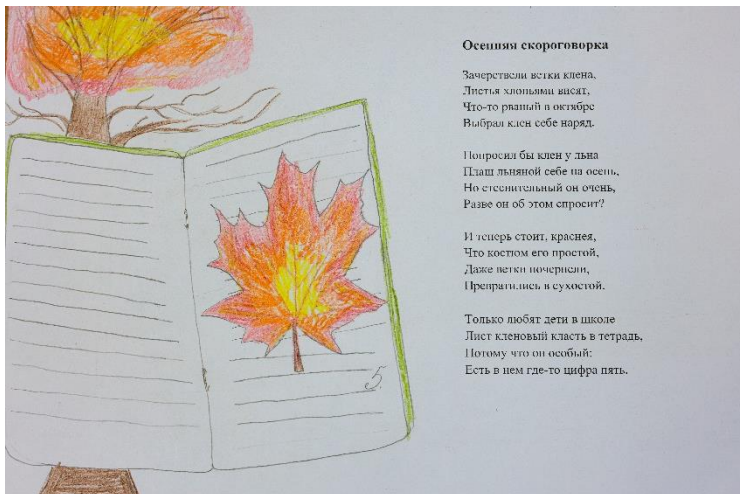 Осенняя скороговорка
Зачерствели ветки клена,
Листья хлопьями висят,
Что-то рваный в октябре
Выбрал клен себе наряд.
Попросил бы клен у льна
Плащ льняной себе на осень,
Но стеснительный он очень,
Разве он об этом спросит?
И теперь стоит, краснея,
Что костюм его простой,
Даже ветки почернели,
Превратились в сухостой.
Только любят дети в школе
Лист кленовый класть в тетрадь,
Потому что он особый:
Есть в нем где-то цифра пять.
5